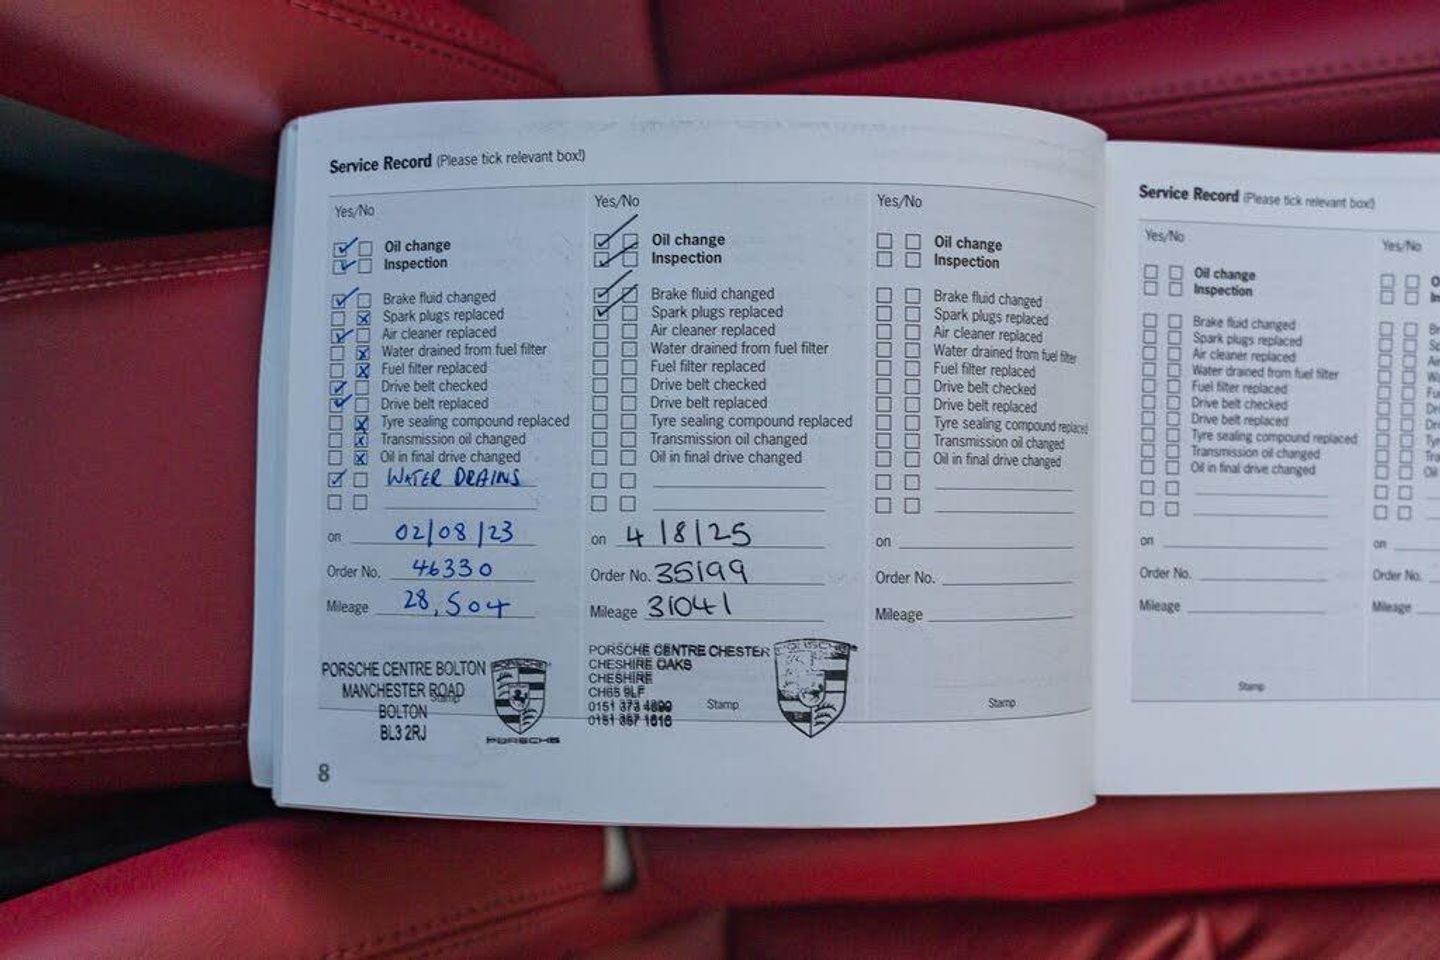 Service Record (Please tick relevant box!)
Yes/No
Oil change
Inspection
Brake fluid changed
Spark plugs replaced
Air cleaner replaced
Water drained from fuel filter
Fuel filter replaced
Drive belt checked
Drive belt replaced
Tyre sealing compound replaced
Transmission oil changed
Oil in final drive changed
WATER DRAINS
on 02/08/23
Order No. 46330
Mileage 28,504
PORSCHE CENTRE BOLTON
MANCHESTER ROAD
Stamp
BOLTON
BL3 2RJ
PORSCHE
PORSCHE
8
Yes/No
Oil change
Inspection
Brake fluid changed
Spark plugs replaced
Air cleaner replaced
Water drained from fuel filter
Fuel filter replaced
Drive belt checked
Drive belt replaced
Tyre sealing compound replaced
Transmission oil changed
Oil in final drive changed
on 4/8/25
Order No. 35199
Mileage 31041
PORSCHE CENTRE CHESTER
CHESHIRE OAKS
CHESHIRE
CH65 9LF
0151
0151 1616
Stamp
PORSCHE
Yes/No
Oil change
Inspection
Brake fluid changed
Spark plugs replaced
Air cleaner replaced
Water drained from fuel filter
Fuel filter replaced
Drive belt checked
Drive belt replaced
Tyre sealing compound replaced
Transmission oil changed
Oil in final drive changed
on
Order No.
Mileage
Stamp
Service Record (Please tick relevant box!)
Yes/No
Oil change
Inspection
Brake fluid changed
Spark plugs replaced
Air cleaner replaced
Water drained from fuel filter
Fuel filter replaced
Drive belt checked
Drive belt replaced
Tyre sealing compound replaced
Transmission oil changed
Oil in final drive changed
on
Order No.
Mileage
Stamp
Yes/No
on
Order No.
Mileage